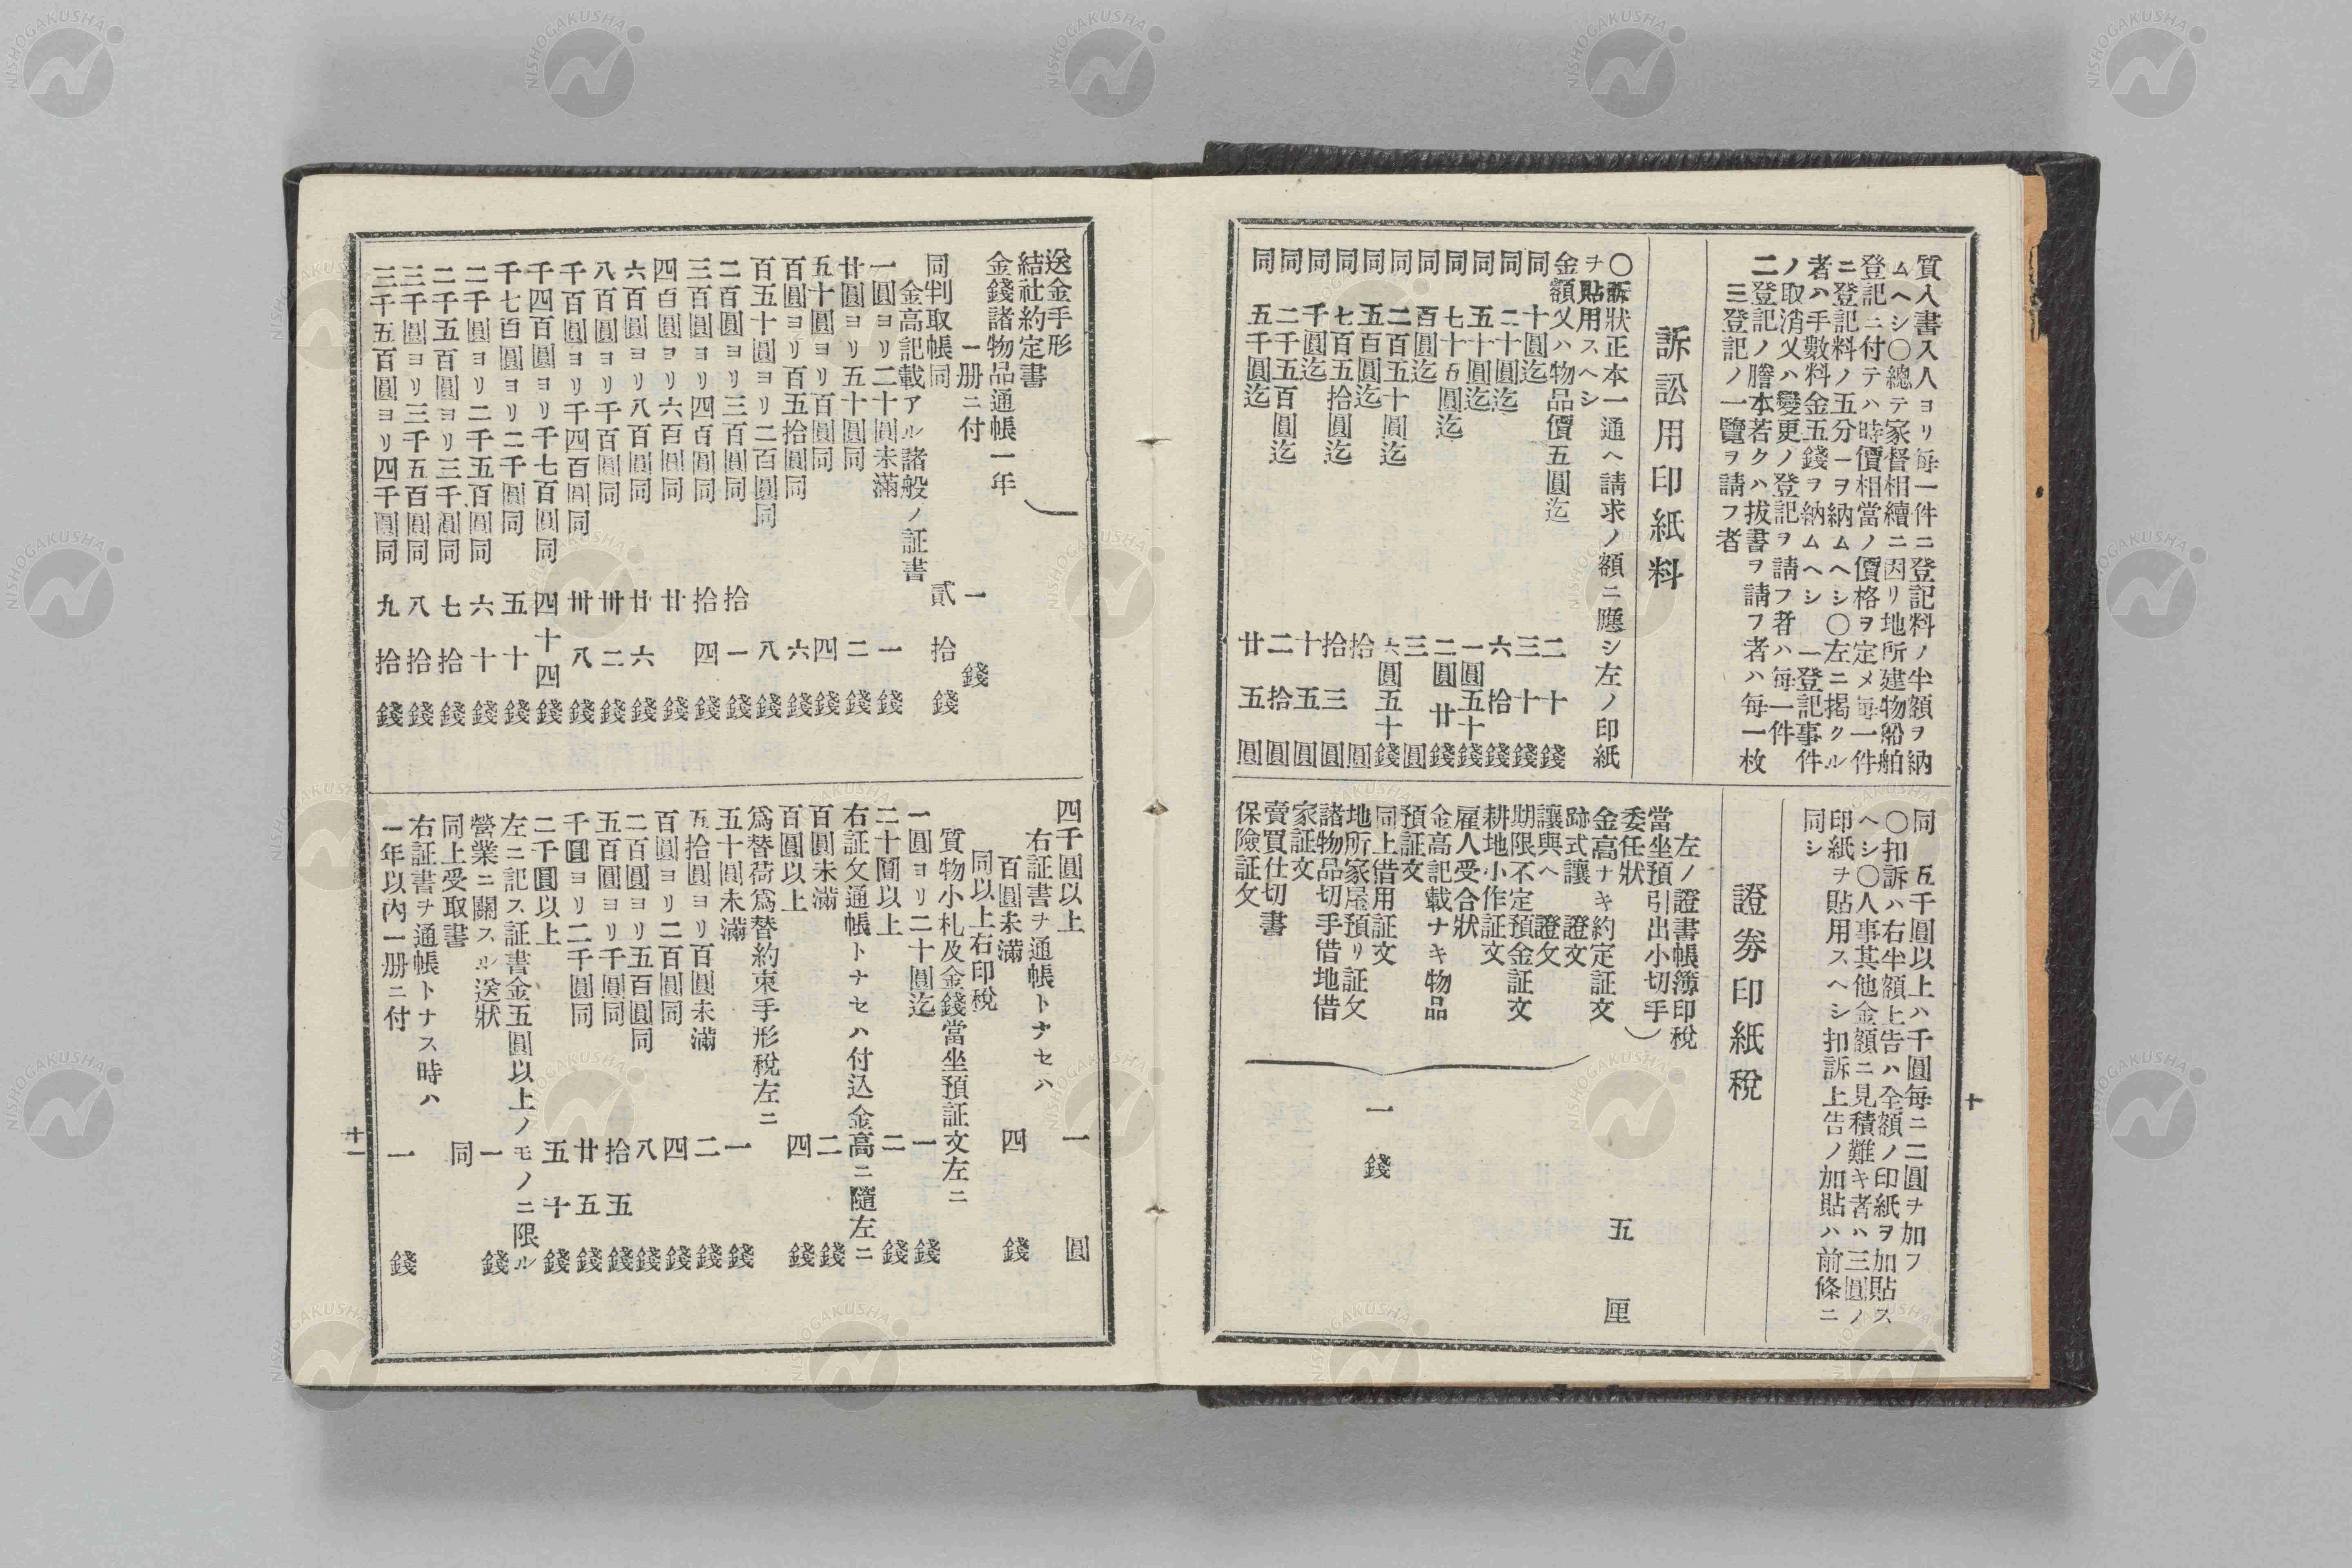 質入書入人ヨリ毎一件ニ登記料ノ半額ヲ納
ムヘシ〇總テ家督相續ニ因リ地所建物船舶
登記ニ付テハ時價相當ノ價格ヲ定メ毎一件
ニ登記料ノ五分一ヲ納ムヘシ〇左ニ揭クル
者ハ手數料金五錢ヲ納ムヘシ 一登記事件
ノ取消又ハ變更ノ登記ヲ請フ者ハ毎一件
二登記ノ謄本若クハ拔書ヲ請フ者ハ毎一枚
三登記ノ一覽ヲ請フ者
訴訟用印紙料
〇訴狀正本一通ヘ請求ノ額ニ應シ左ノ印紙
ヲ貼用スヘシ
金額又ハ物品價五圓迄 二十錢
同 十圓迄 三十錢
同 二十圓迄 六拾錢
同 五十圓迄 一圓五十錢
同 七十五圓迄 二圓廿錢
同 百圓迄 三圓
同 二百五十圓迄 六圓五十錢
同 五百圓迄 拾圓
同 七百五拾圓迄 拾三圓
同 千圓迄 十五圓
同 二千五百圓迄 二拾圓
同 五千圓迄 廿五圓
同 五千圓以上ハ千圓毎ニ二圓ヲ加フ
〇扣訴ハ右半額上告ハ全額ノ印紙ヲ加貼ス
ヘシ〇人事其他金額ニ見積難キ者ハ三圓ノ
印紙ヲ貼用スヘシ扣訴上告ノ加貼ハ前條ニ
同シ
證券印紙稅
左ノ證書帳簿印稅
當坐預引出小切手
委任狀
金高ナキ約定証文 五厘
跡式讓 證文
讓與ヘ 證文
期限不定預金証文
耕地小作証文
雇人受合狀
金高記載ナキ物品
預証文
同上借用証文
地所家屋預リ証文
諸物品切手借地借
家証文
賣買仕切書
保險証文
一錢
十
送金手形
結社約定書
金錢諸物品通帳一年
一册ニ付 一錢
同判取帳同 貳拾錢
金高記載アル諸般ノ証書
一圓ヨリ二十圓未滿 一錢
廿圓ヨリ五十圓同 二錢
五十圓ヨリ百圓同 四錢
百圓ヨリ百五拾圓同 六錢
百五十圓ヨリ二百圓同 八錢
二百圓ヨリ三百圓同 拾一錢
三百圓ヨリ四百圓同 拾四錢
四百圓ヨリ六百圓同 廿錢
六百圓ヨリ八百圓同 廿六錢
八百圓ヨリ千百圓同 卅二錢
千百圓ヨリ千四百圓同 卅八錢
千四百圓ヨリ千七百圓同 四十四錢
千七百圓ヨリ二千圓同 五十錢
二千圓ヨリ二千五百圓同 六十錢
二千五百圓ヨリ三千圓同 七拾錢
三千圓ヨリ三千五百圓同 八拾錢
三千五百圓ヨリ四千圓同 九拾錢
四千圓以上 一圓
右証書ヲ通帳トナセハ
百圓未滿 四錢
同以上右印稅
質物小札及金錢當坐預証文左ニ
一圓ヨリ二十圓迄 一錢
二十圓以上 二錢
右証文通帳トナセハ付込金高ニ隨左ニ
百圓未滿 二錢
百圓以上 四錢
爲替荷爲替約束手形稅左ニ
五十圓未滿 一錢
五拾圓ヨリ百圓未滿 二錢
百圓ヨリ二百圓同 四錢
二百圓ヨリ五百圓同 八錢
五百圓ヨリ千圓同 拾五錢
千圓ヨリ二千圓同 廿五錢
二千圓以上 五十錢
左ニ記ス証書金五圓以上ノモノニ限ル
營業ニ關スル送狀 一錢
同上受取書 同
右証書ヲ通帳トナス時ハ
一年以內一册ニ付 一錢
十一
NISHOGAKUSHA